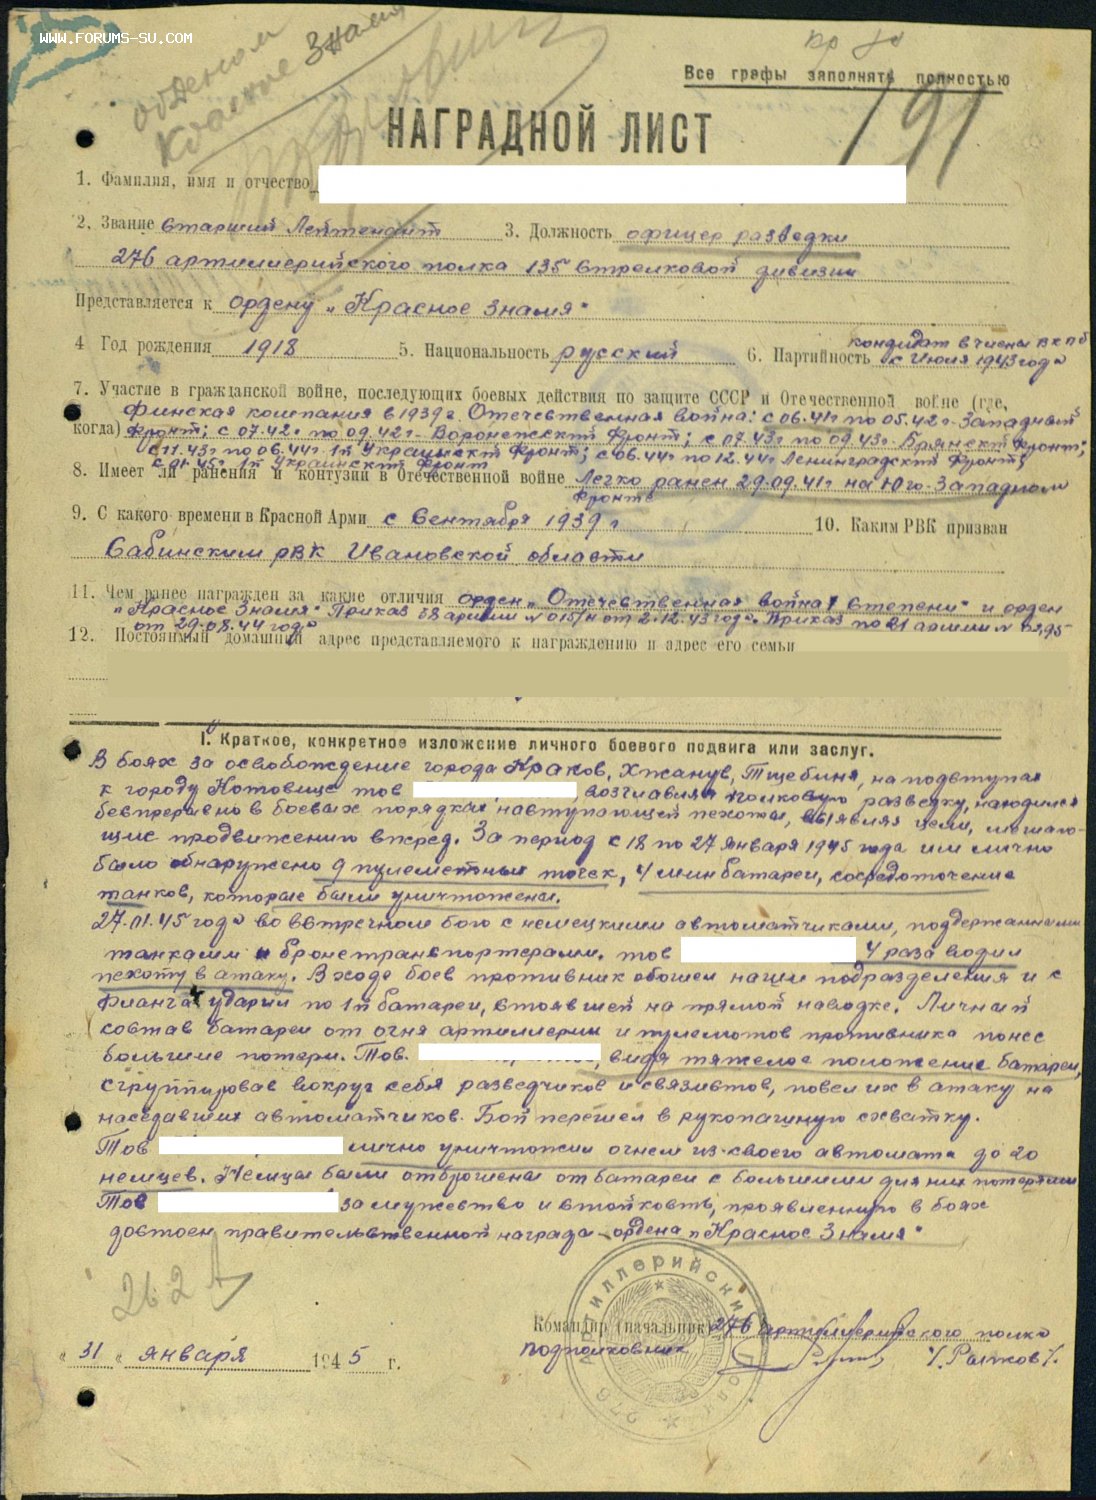 WWW.FORUMS-SU.COM
орденом
Красное Знамя
Все графы заполнять полностью
191
НАГРАДНОЙ ЛИСТ
1. Фамилия, имя и отчество
2. Звание Старший Лейтенант 3. Должность офицер разведки
276 артиллерийского полка 135 Стрелковой дивизии
Представляется к ордену „Красное Знамя"
4 Год рождения 1918 5. Национальность русский 6. Партийность кандидат в члены ВКПб
с Июля 1943 года
7. Участие в гражданской войне, последующих боевых действия по защите СССР и Отечественной войне (где,
когда) Финская компания в 1939 г. Отечественная война: с 06.41г по 05.42г. Западный
фронт; с 07.42г по 09.42г - Воронежский фронт; с 07.43г по 09.43г - Брянский фронт;
с 11.43г по 06.44г. 1й Украинский фронт; с 06.44г по 12.44г Ленинградский фронт;
с 01.45г 1й Украинский фронт
8. Имеет ли ранения и контузии в Отечественной войне Легко ранен 29.09.41г на Юго-Западном
фронте
9. С какого времени в Красной Арми с Сентября 1939 г 10. Каким РВК призван
Савинским РВК Ивановской области
11. Чем ранее награжден за какие отличия орден „Отечественная война I степени" и орден
„Красное Знамя" Приказ 38 армии № 015/н от 2.12.43 года. Приказ по 21 армии
от 29.08.44 года
12. Постоянный домашний адрес представляемого к награждению и адрес его семьи
I. Краткое, конкретное изложение личного боевого подвига или заслуг.
В боях за освобождение города Краков, Хжанув, Тщебиня, на подступах
к городу Котовице тов , возглавляя полковую разведку, находился
беспрерывно в боевых порядках наступающей пехоты, выявляя цели, мешаю-
щие продвижению вперед. За период с 18 по 27 января 1945 года им лично
было обнаружено 9 пулеметных точек, 4 минбатареи, сосредоточение
танков, которые были уничтожены.
27.01.45 года во встречном бою с немецкими автоматчиками, поддержанными
танками и бронетранспортерами. тов 4 раза водил
пехоту в атаку. В ходе боев противник обошел наши подразделения и с
фланга ударил по 1й батареи, стоявшей на прямой наводке. Личный
состав батареи от огня артиллерии и пулеметов противника понес
большие потери. Тов. , видя тяжелое положение батареи,
сгруппировав вокруг себя разведчиков и связистов, повел их в атаку на
наседавших автоматчиков. Бой перешел в рукопашную схватку.
Тов лично уничтожил огнем из своего автомата до 20
немцев. Немцы были отброшены от батареи с большими для них потерями
Тов за мужество и стойкость, проявленную в боях
достоен правительственной награды - ордена „Красное Знамя"
262
Командир (начальник) 276 артиллерийского полка
подполковник /Рыжков/.
„31" января 1945 г.
276 АРТИЛЛЕРИЙСКИЙ ПОЛК